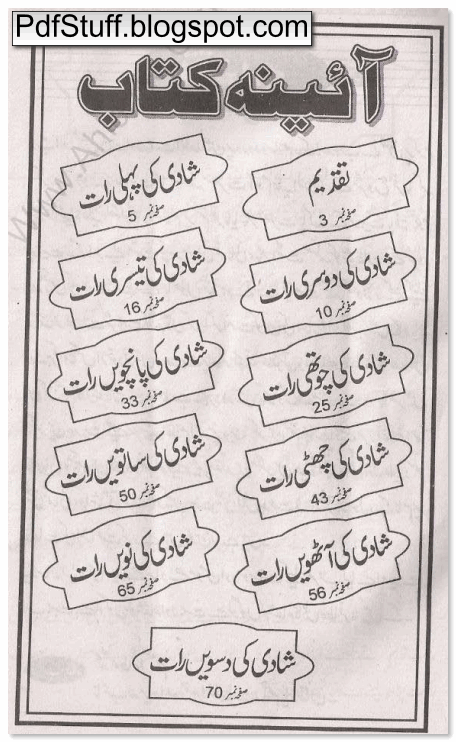 PdfStuff.blogspot.com
آئینہ کتاب
تقدیم
صفحہ نمبر 3
شادی کی پہلی رات
صفحہ نمبر 5
شادی کی دوسری رات
صفحہ نمبر 10
شادی کی تیسری رات
صفحہ نمبر 16
شادی کی چوتھی رات
صفحہ نمبر 25
شادی کی پانچویں رات
صفحہ نمبر 33
شادی کی چھٹی رات
صفحہ نمبر 43
شادی کی ساتویں رات
صفحہ نمبر 50
شادی کی آٹھویں رات
صفحہ نمبر 56
شادی کی نویں رات
صفحہ نمبر 65
شادی کی دسویں رات
صفحہ نمبر 70